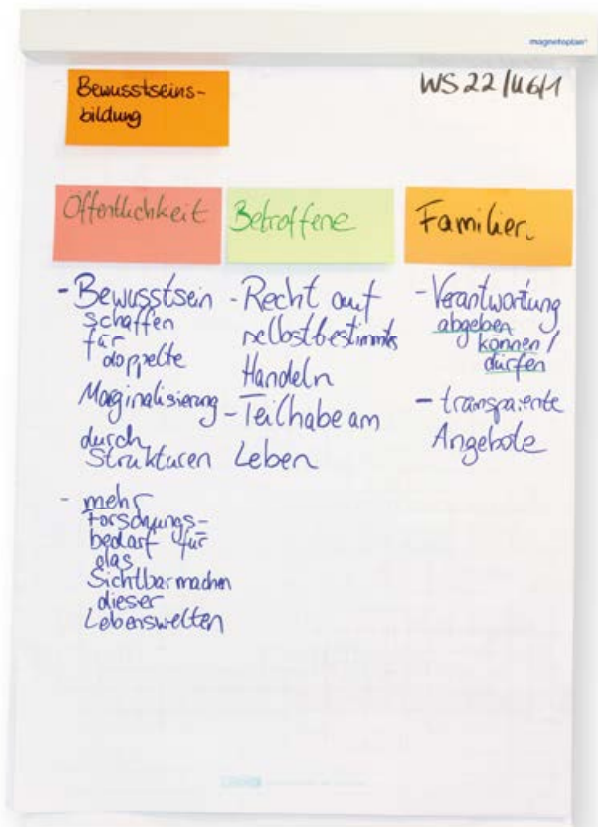 magnetoplan®
Bewusstseins-
bildung
WS 22/U6/1
Öffentlichkeit
- Bewusstsein
schaffen
für
doppelte
Marginalisierung
durch
Strukturen
- mehr
Forschungs-
bedarf für
das
Sichtbarmachen
dieser
Lebenswelten
Betroffene
- Recht auf
selbstbestimmtes
Handeln
- Teilhabe am
Leben
Familien
- Verantwortung
abgeben
können /
dürfen
- transparente
Angebote